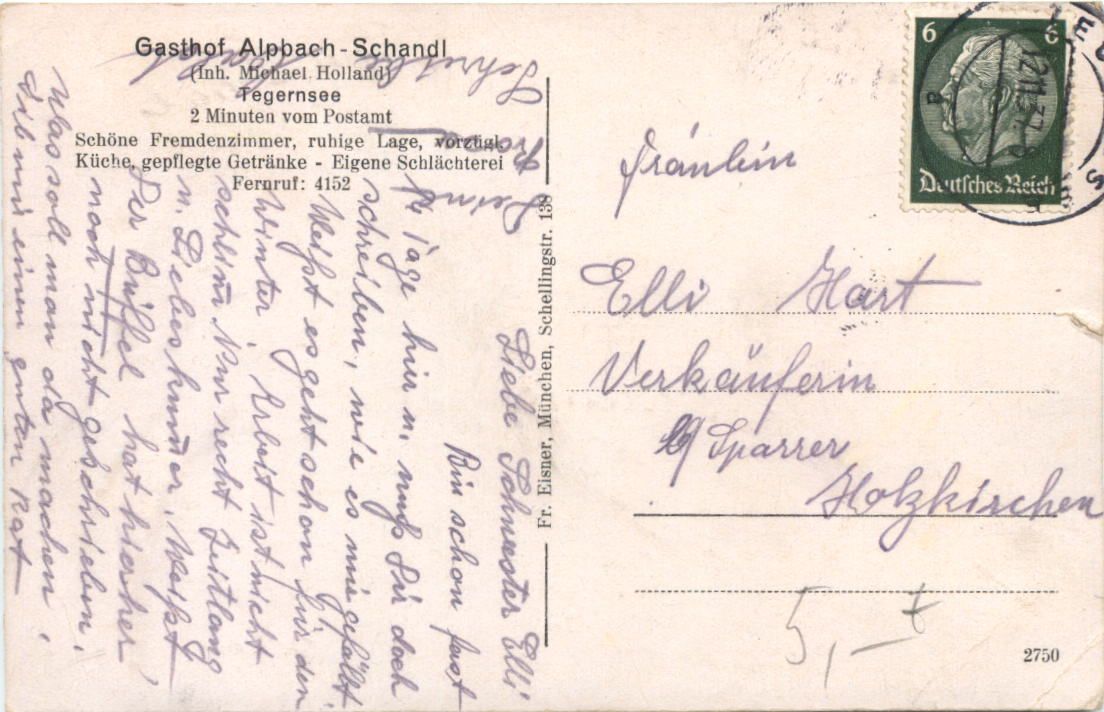 Gasthof Alpbach-Schandl
(Inh. Michael Holland)
Tegernsee
2 Minuten vom Postamt
Schöne Fremdenzimmer, ruhige Lage, vorzügl.
Küche, gepflegte Getränke - Eigene Schlächterei
Fernruf: 4152
Liebe Schwester Elli
Bin schon fast
14 Tage hir u. muß dir doch
schreiben, wie es mir gefällt
Weißt es geht schon für den
Winter, Arbeit ist nicht
schlim Nur recht Zeitlang
u. Liebeskummer, Weißt
Der Büffel hat hierher
noch nicht geschrieben,
Was soll man da machen,
Gib mir einen guten Rat
Schreibe
Deine
Fr. Eisner, München, Schellingstr. 139
6 6
Deutsches Reich
12.11.37
Fräulein
Elli Hart
Verkäuferin
b/ Sparrer
Holzkirchen
5,-
2750